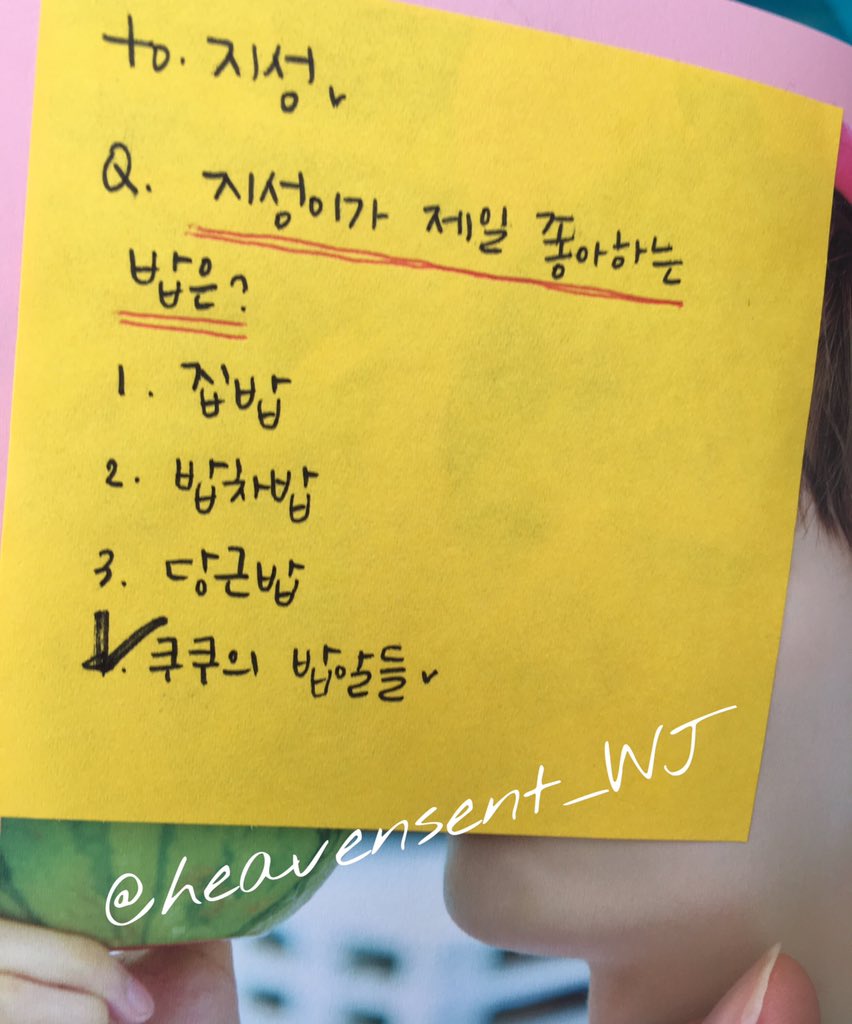 to. 지성
Q. 지성이가 제일 좋아하는
밥은?
1. 집밥
2. 밥차밥
3. 당근밥
쿠쿠의 밥알들
@heavensent_WJ